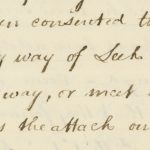 en consented to
way of Leek
way, or meet
s the attack on